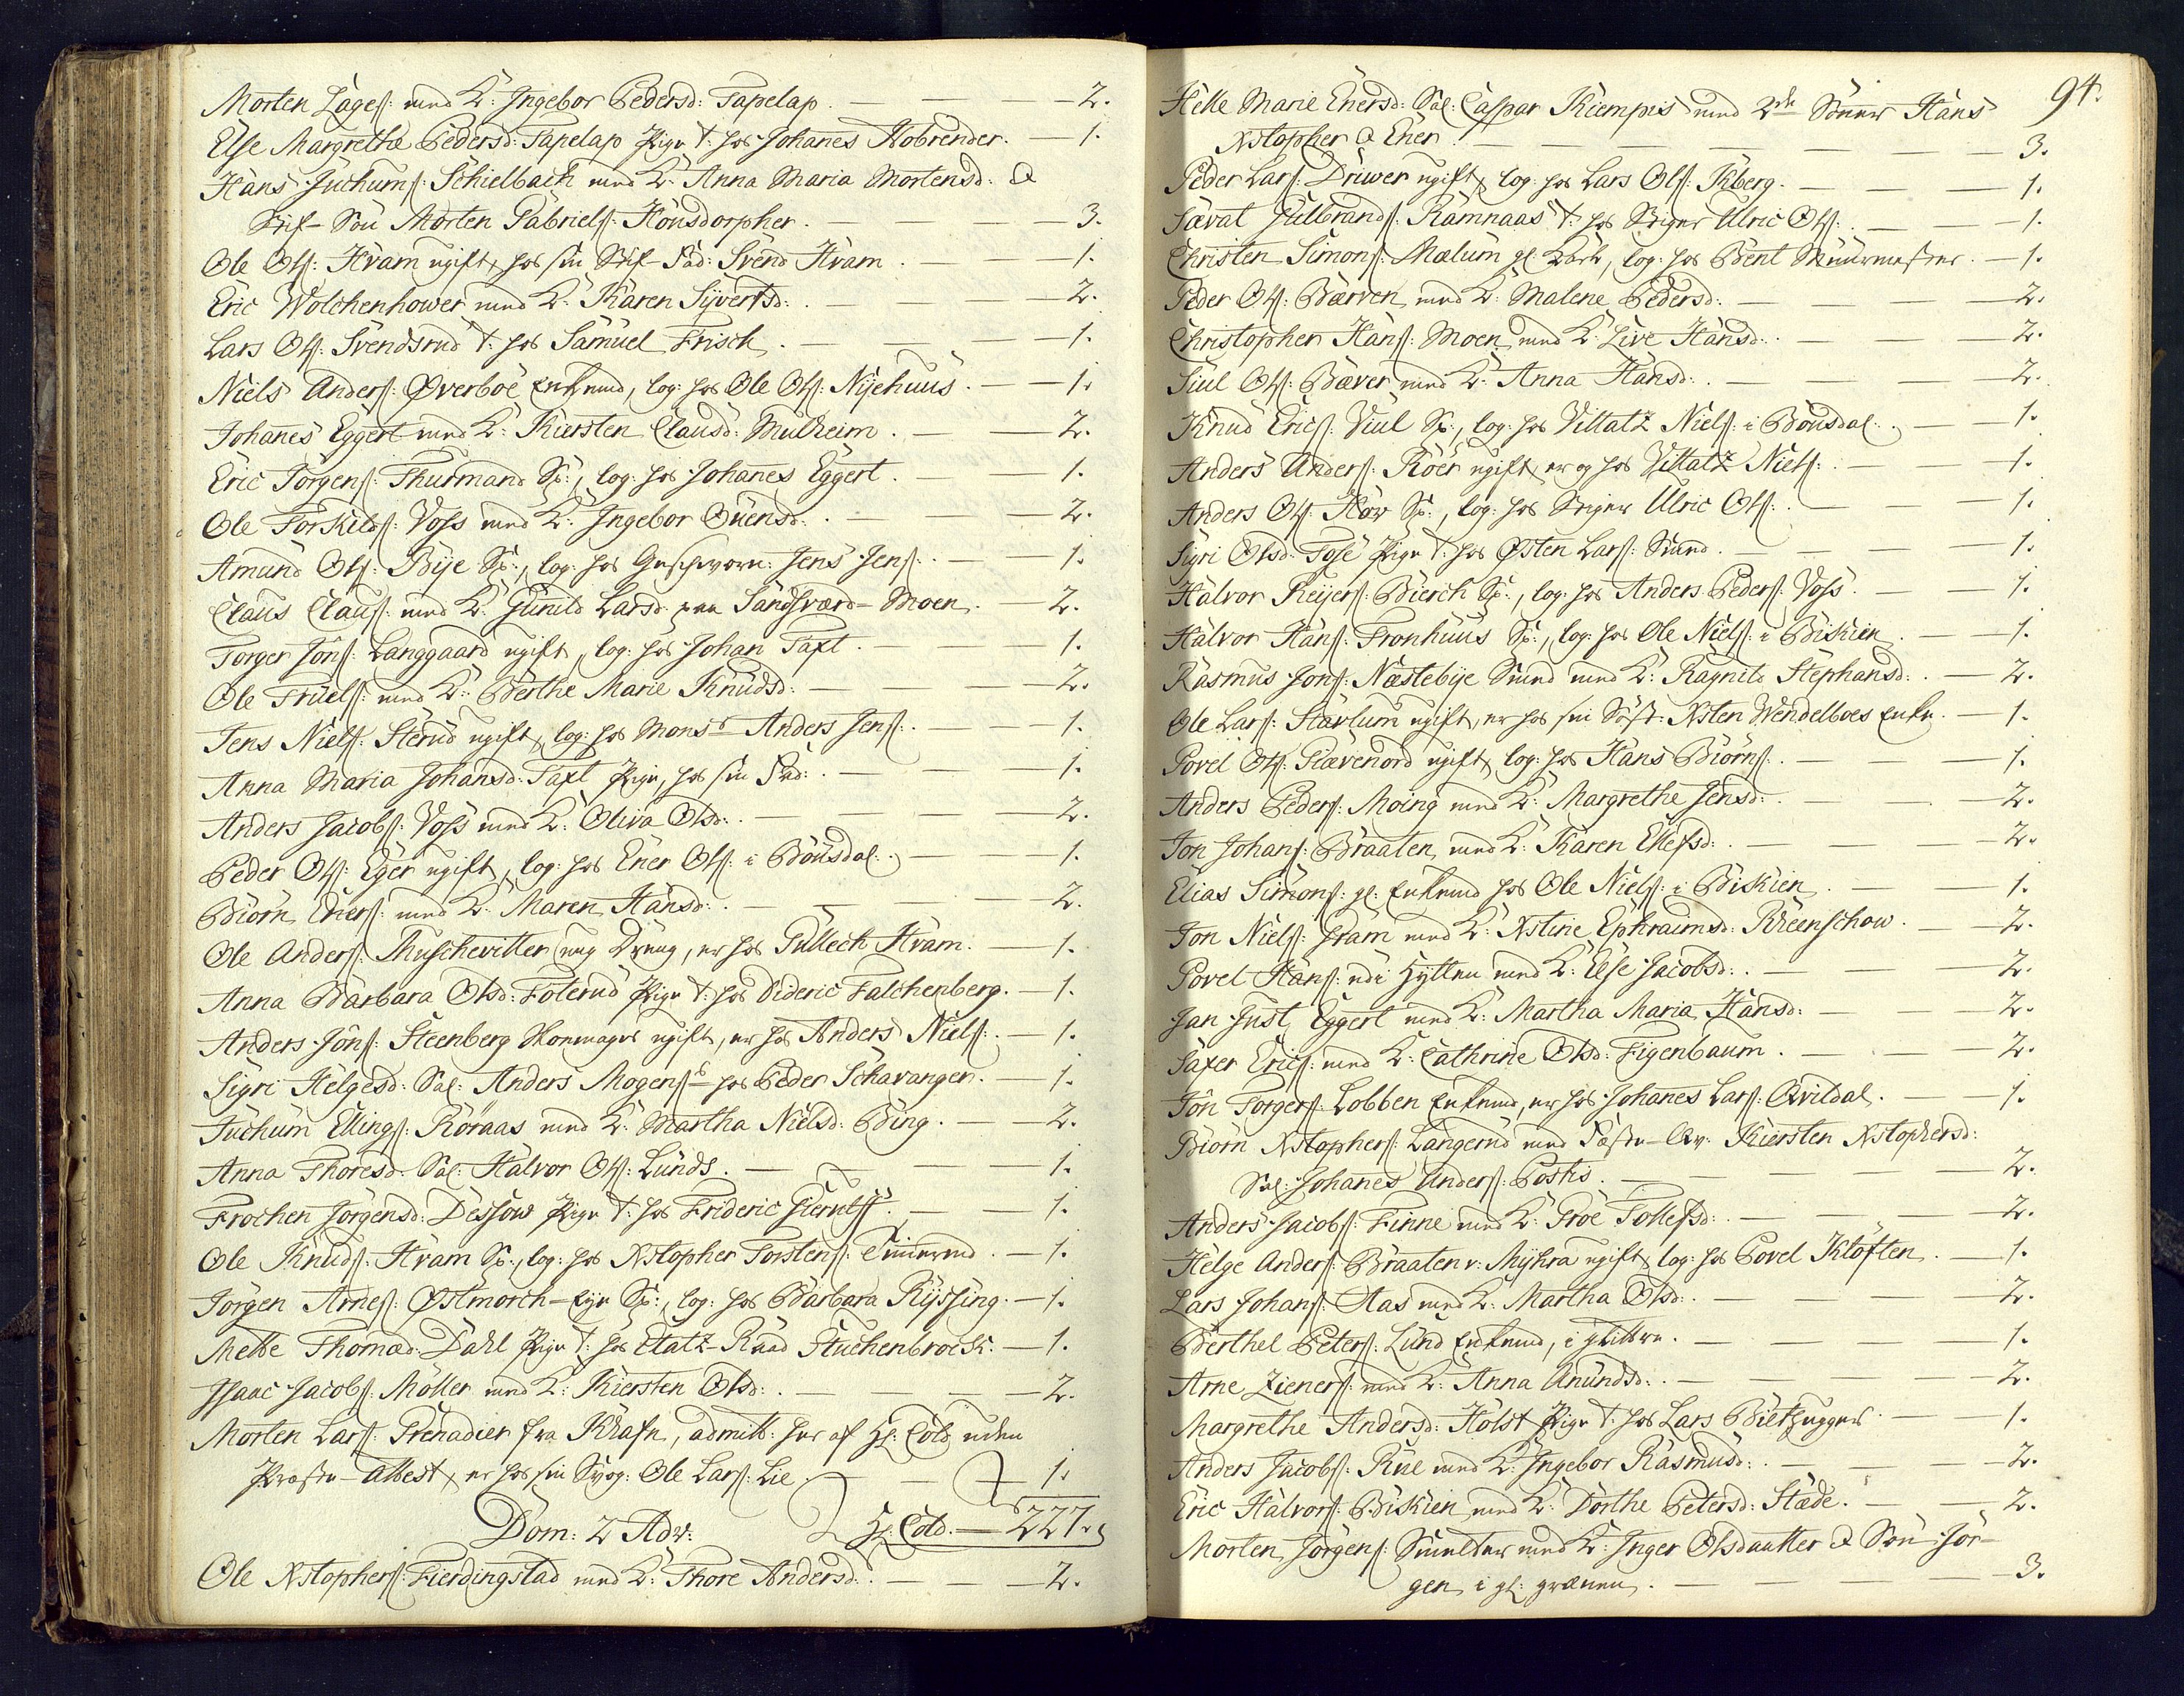 Morten Lages: med K: Ingebor Pedersd: Tapelap. — 2.
Else Margretha Pedersd: Tapelap Pige t: hos Johanes Hobrender. — 1.
Hans Juchums: Schielbach med K: Anna Maria Mortensd: &
Stif-Søn Morten Gabriels: Hönsdorpher. — 3.
Ole Ols: Hvam ugift, hos sin Stif-Fad: Svend Hvam. — 1.
Eric Wolchenhower med K: Karen Syvertsd: — 2.
Lars Ols: Svendsrud t: hos Samuel Frisch. — 1.
Niels Anders: Øverboe Enkemd, log: hos Ole Ols: Nyehuus. — 1.
Johanes Eggert med K: Kiersten Clausd: Mulheim. — 2.
Eric Jørgens: Thurmand Sp:, log: hos Johanes Eggert. — 1.
Ole Torkilds: Voss med K: Ingebor Ouensd: — 2.
Amund Ols: Bye Sp:, log: hos Geschworn: Jens Jens: — 1.
Claus Claus: med K: Gunild Larsd: paa Sandsværd-Moen. — 2.
Torger Jöns: Langgaard ugift, log: hos Johan Taxt. — 1.
Ole Truels: med K: Berthe Marie Knudsd: — 2.
Jens Niels: Sterud ugift, log: hos Monsr Anders Jens: — 1.
Anna Maria Johansd: Taxt Pige, hos sin Fad: — 1.
Anders Jacobs: Voss med K: Oliva Olsd: — 2.
Peder Ols: Eger ugift, log: hos Ener Ols: i Bönsdal. — 1.
Biörn Eners: med K: Maren Hansd: — 2.
Ole Anders: Muschevitter ung Dreng, er hos Gullech Hvam. — 1.
Anna Barbara Olsd: Foterud Pige t: hos Dideric Falchenberg. — 1.
Anders Jöns: Steenberg Skomager ugift, er hos Anders Niels: — 1.
Sigri Helgesd: Sal: Anders Mogens:s hos Peder Schavanger. — 1.
Juchum Ellings: Röraas med K: Martha Nielsd: Bing. — 2.
Anna Thoresd: Sal: Halvor Ols: Lunds. — 1.
Frochen Jörgensd: Dessow Pige t: hos Frideric Gierutss: — 1.
Ole Knuds: Hvam Sp:, log: hos Xstopher Torstens: Timmermd. — 1.
Jörgen Arnes: Østmorch-Eye Sp:, log: hos Barbara Ryssing. — 1.
Mette Thomæd: Dahl Pige t: hos Etatz-Raad Stuchenbroch. — 1.
Isaac Jacobs: Möller med K: Kiersten Olsd: — 2.
Morten Lars: Grenadier fra Krafn, admitt: her af H: Cold uden
Præste-Attest, er hos sin Svog: Ole Lars: Lie. — 1.
Dom: 2 Adv: H: Cold. — 227.
Ole Xstophers: Fierdingstad med K: Thore Andersd: — 2.
94.
Helle Marie Enersd: Sal: Caspar Kiempis med 2de Sönner Hans
Xstopher & Ener. — 3.
Peder Lars: Druwer ugift, log: hos Lars Ols: Kberg. — 1.
Sævat Gulbrands: Ramnaas t: hos Stiger Ulric Ols: — 1.
Christen Simons: Mælum gl: Karl, log: hos Bent Muurmester. — 1.
Peder Ols: Bærven med K: Malene Pedersd: — 2.
Christopher Hans: Moen med K: Live Hansd: — 2.
Siul Ols: Bæver med K: Anna Hansd: — 2.
Knud Erics: Viul Sp:, log: hos Villatz Niels: i Bönsdal. — 1.
Anders Anders: Röer ugift, er og hos Villatz Niels: — 1.
Anders Ols: Hov Sp:, log: hos Stiger Ulric Ols: — 1.
Sigri Olsd: Fose Pige t: hos Østen Lars: Smed. — 1.
Halvor Reijers: Bierch Sp:, log: hos Anders Peders: Voss. — 1.
Halvor Hans: Tronhuus Sp:, log: hos Ole Niels: i Biskien. — 1.
Rasmus Jons: Næstebye Smed med K: Ragnild Stephansd: — 2.
Ole Lars: Stavlum ugift, er hos sin Söst: Xsten Wendelboes Enke. — 1.
Povel Ols: Gravenord ugift, log: hos Hans Biörns: — 1.
Anders Peders: Moing med K: Margrethe Jensd: — 2.
Jon Johans: Braaten med K: Karen Ellefsd: — 2.
Elias Simons: gl: Enkemd hos Ole Niels: i Biskien. — 1.
Jon Niels: Fram med K: Xstine Ephraimsd: Rheenschow. — 2.
Povel Hans: udi Hytten med K: Else Jacobsd: — 2.
Jan Just Eggert med K: Martha Maria Hansd: — 2.
Saxer Erics: med K: Cathrine Olsd: Figenbaum. — 2.
Jön Torgers: Lobben Enkemd, er hos Johanes Lars: Qvildal. — 1.
Biörn Xstophers: Langerud med Fæste-Qv: Kiersten Xstophersd:
Sal: Johanes Anders: Postis. — 2.
Anders Jacobs: Finne med K: Groe Tollefsd: — 2.
Helge Anders: Braaten v: Myhra ugift, log: hos Povel Klöften. — 1.
Lars Johans: Aas med K: Martha Olsd: — 2.
Berthel Peters: Lund Enkemd, i Hütten. — 1.
Arne Zieners: med K: Anna Anundsd: — 2.
Margrethe Andersd: Holst Pige t: hos Lars Bielthugger. — 1.
Anders Jacobs: Rue med K: Ingebor Rasmusd: — 2.
Eric Halvors: Biskien med K: Dorthe Petersd: Stade. — 2.
Morten Jörgens: Smelter med K: Inger Olsdautter & Sön Jör-
gen, i gl: grænen. — 3.